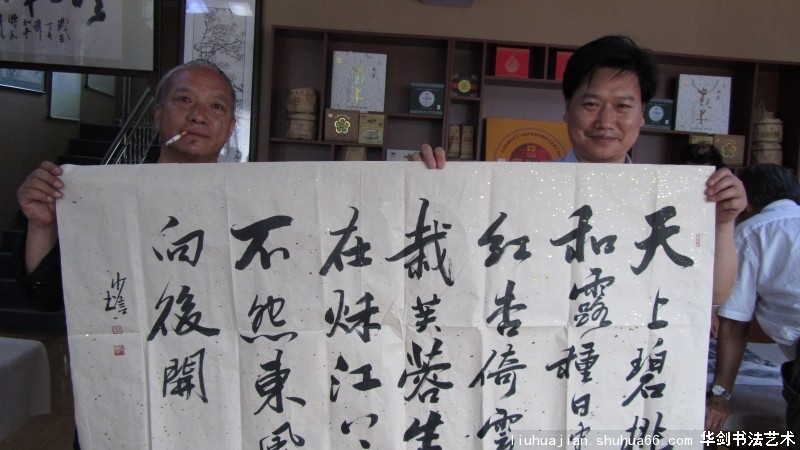 天上碧桃
和露種日
紅杏倚雲
栽芙蓉生
在秋江上
不怨東風
向後開
liuhuajian.shuhua66.com 华剑书法艺术